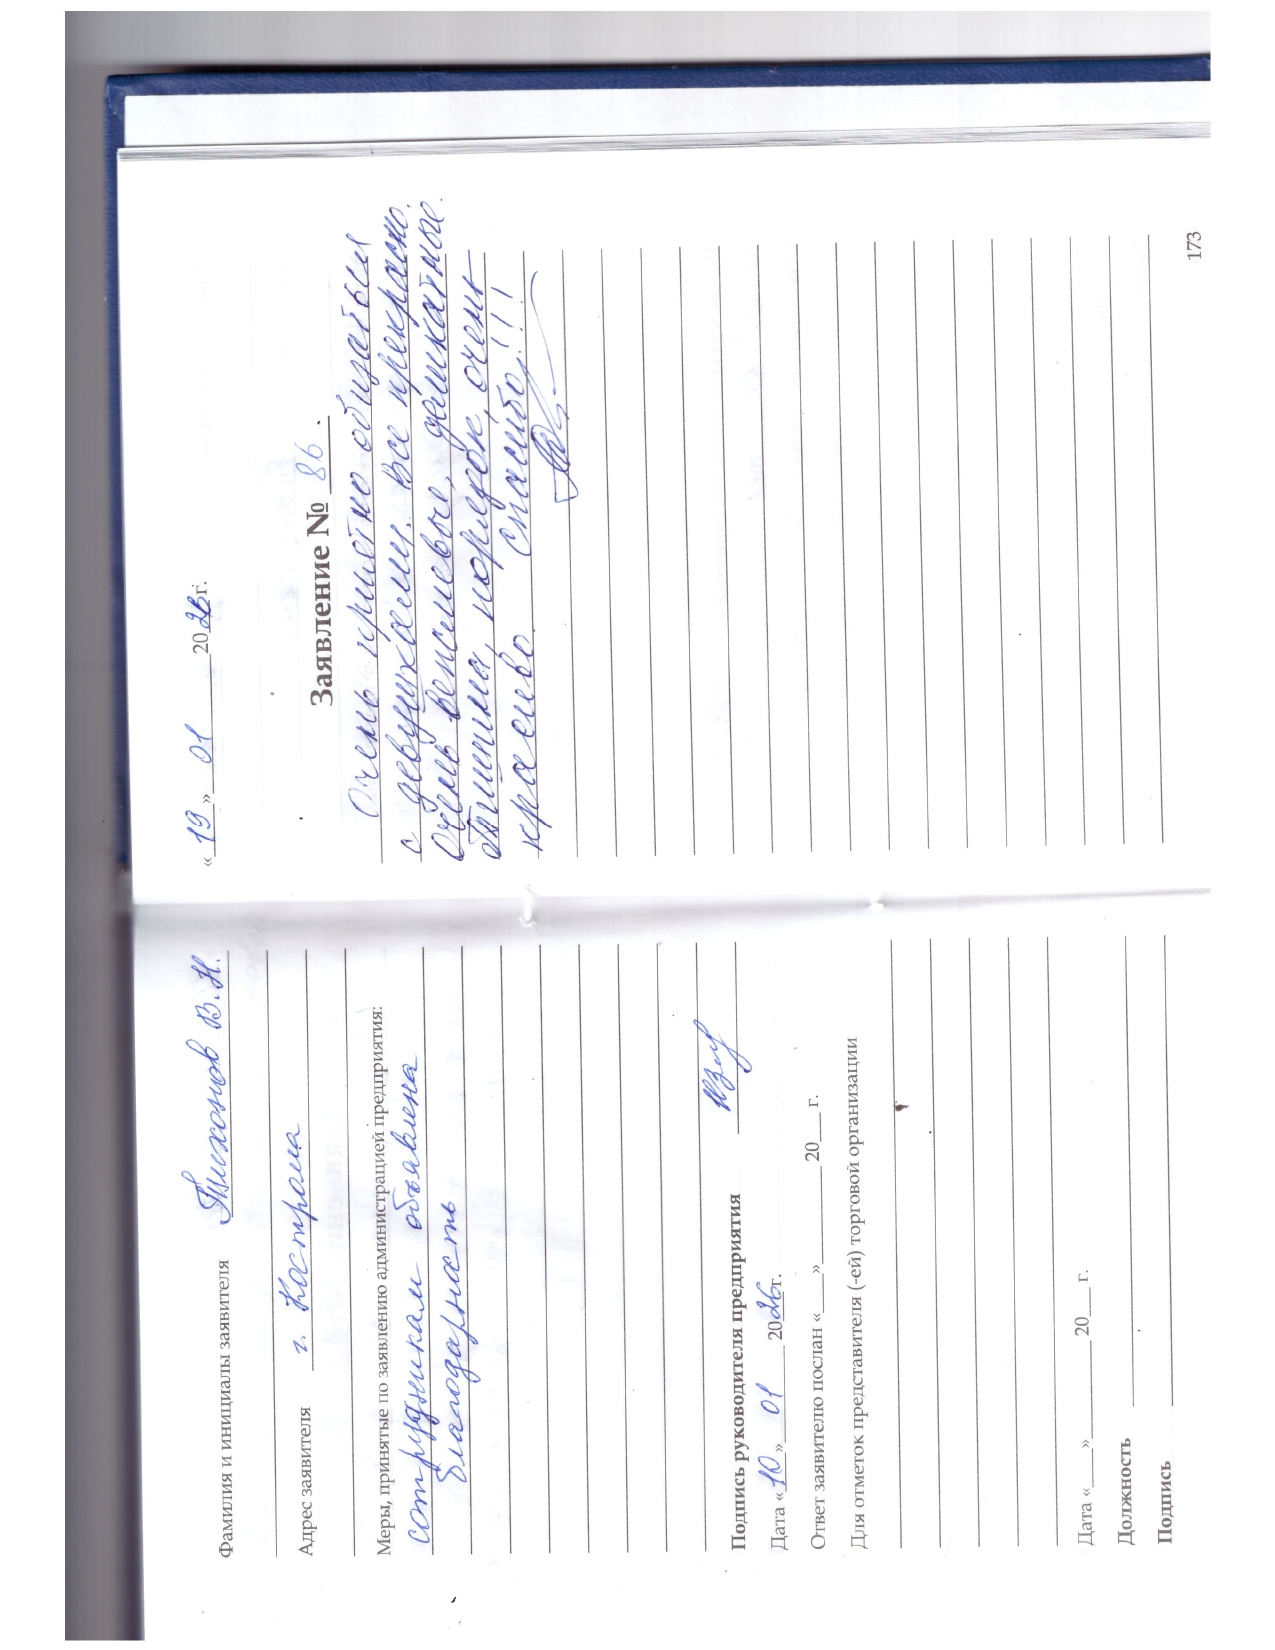 Фамилия и инициалы заявителя Тихонов В.Н.
Адрес заявителя г. Кострома
Меры, принятые по заявлению администрацией предприятия:
сотрудникам объявлена
благодарность
Подпись руководителя предприятия
Дата «10» 01 2026г.
Ответ заявителю послан «___»________ 20___ г.
Для отметок представителя (-ей) торговой организации
Дата «___»________ 20___ г.
Должность
Подпись
«19» 01 20 г.
Заявление № 86.
Очень приятно общаться
с девушками. Все прекрасно.
Очень вежливые, деликатные.
Тишина, порядок, очень
красиво. Спасибо!!!
173